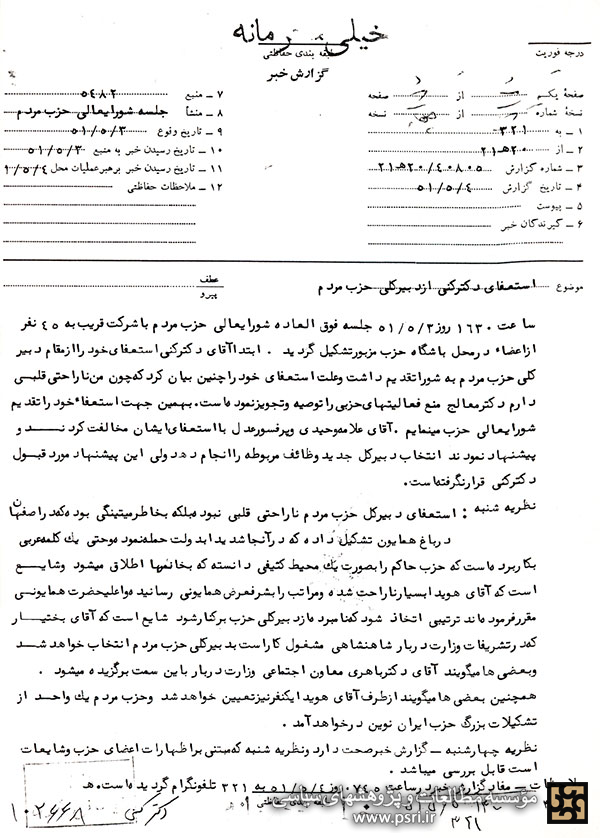 خیلی محرمانه
طبقه بندی حفاظتی
گزارش خبر
درجه فوریت
صفحهٔ یکم از صفحه
نسخهٔ شماره از نسخه
۱ ــ به ۳۲۱
۲ ــ از ۲۰هـ۲۱
۳ ــ شماره گزارش ۲۰/۴۰۸۰۵هـ۲۱
۴ ــ تاریخ گزارش ۵۱/۵/۴
۵ ــ پیوست
۶ ــ گیرندگان خبر
۷ ــ منبع ۵۴۸۲
۸ ــ منشأ جلسه شورایعالی حزب مردم
۹ ــ تاریخ وقوع ۵۱/۵/۳
۱۰ ــ تاریخ رسیدن خبر به منبع ۵۱/۵/۳
۱۱ ــ تاریخ رسیدن خبر برهبرعملیات محل ۵۱/۵/۴
۱۲ ــ ملاحظات حفاظتی
موضوع استعفای دکترکنی ازدبیرکلی حزب مردم
عطف
پیرو
ساعت ۱۶۳۰ روز ۵۱/۵/۳ جلسه فوق العاده شورایعالی حزب مردم با شرکت قریب به ۴۵ نفر
ازاعضاء درمحل باشگاه حزب مزبورتشکیل گردید . ابتدا آقای دکترکنی استعفای خود را ازمقام دبیر
کلی حزب مردم به شورا تقدیم داشت وعلت استعفای خود را چنین بیان کرد که چون من ناراحتی قلبی
دارم دکترمعالج منع فعالیتهای حزبی را توصیه وتجویزنموده است. بهمین جهت استعفاء خود را تقدیم
شورایعالی حزب مینمایم . آقای علامه وحیدی وپرفسورعدل با استعفای ایشان مخالفت کردند و
پیشنهاد نمودند انتخاب دبیرکل جدید وظائف مربوطه را انجام دهد ولی این پیشنهاد مورد قبول
دکترکنی قرارنگرفته است.
نظریه شنبه : استعفای دبیرکل حزب مردم ناراحتی قلبی نبوده بلکه بخاطرمیتینگی بوده که در اصفهان
درباغ همایون تشکیل داده که در آنجا شدیدا بدولت حمله نموده وحتی یک کلمه عربی
بکاربرده است که حزب حاکم را بصورت یک محیط کثیفی دانسته که بخانمها اطلاق میشود وشایع
است که آقای هویدا بسیارناراحت شده ومراتب را بشرفعرض همایونی رسانیده واعلیحضرت همایونی
مقررفرموده اند ترتیبی اتخاذ شود که نامبرده ازدبیرکلی حزب برکنارشود شایع است که آقای بختیار
که در تشریفات وزارت دربار شاهنشاهی مشغول کاراست بدبیرکلی حزب مردم انتخاب خواهد شد
وبعضی ها میگویند آقای دکترباهری معاون اجتماعی وزارت دربار باین سمت برگزیده میشود .
همچنین بعضی ها میگویند ازطرف آقای هویدا یکنفرنیزتعیین خواهد شد وحزب مردم یک واحد از
تشکیلات بزرگ حزب ایران نوین درخواهد آمد .
نظریه چهارشنبه ــ گزارش خبرصحت دارد ونظریه شنبه که مبتنی براظهارات اعضای حزب وشایعات
است قابل بررسی میباشد .
ملاحظات ــ مفاد گزارش خبر درساعت ۰۷۴۵ روز ۵۱/۵/۴ به ۳۲۱ تلفونگرام گردیده است. هـ
طبقه بندی حفاظتی
موسسه مطالعات و پژوهشهای سیاسی
www.psri.ir
۳۲۱
دکتر کنی
۱۰۲۶۶۸